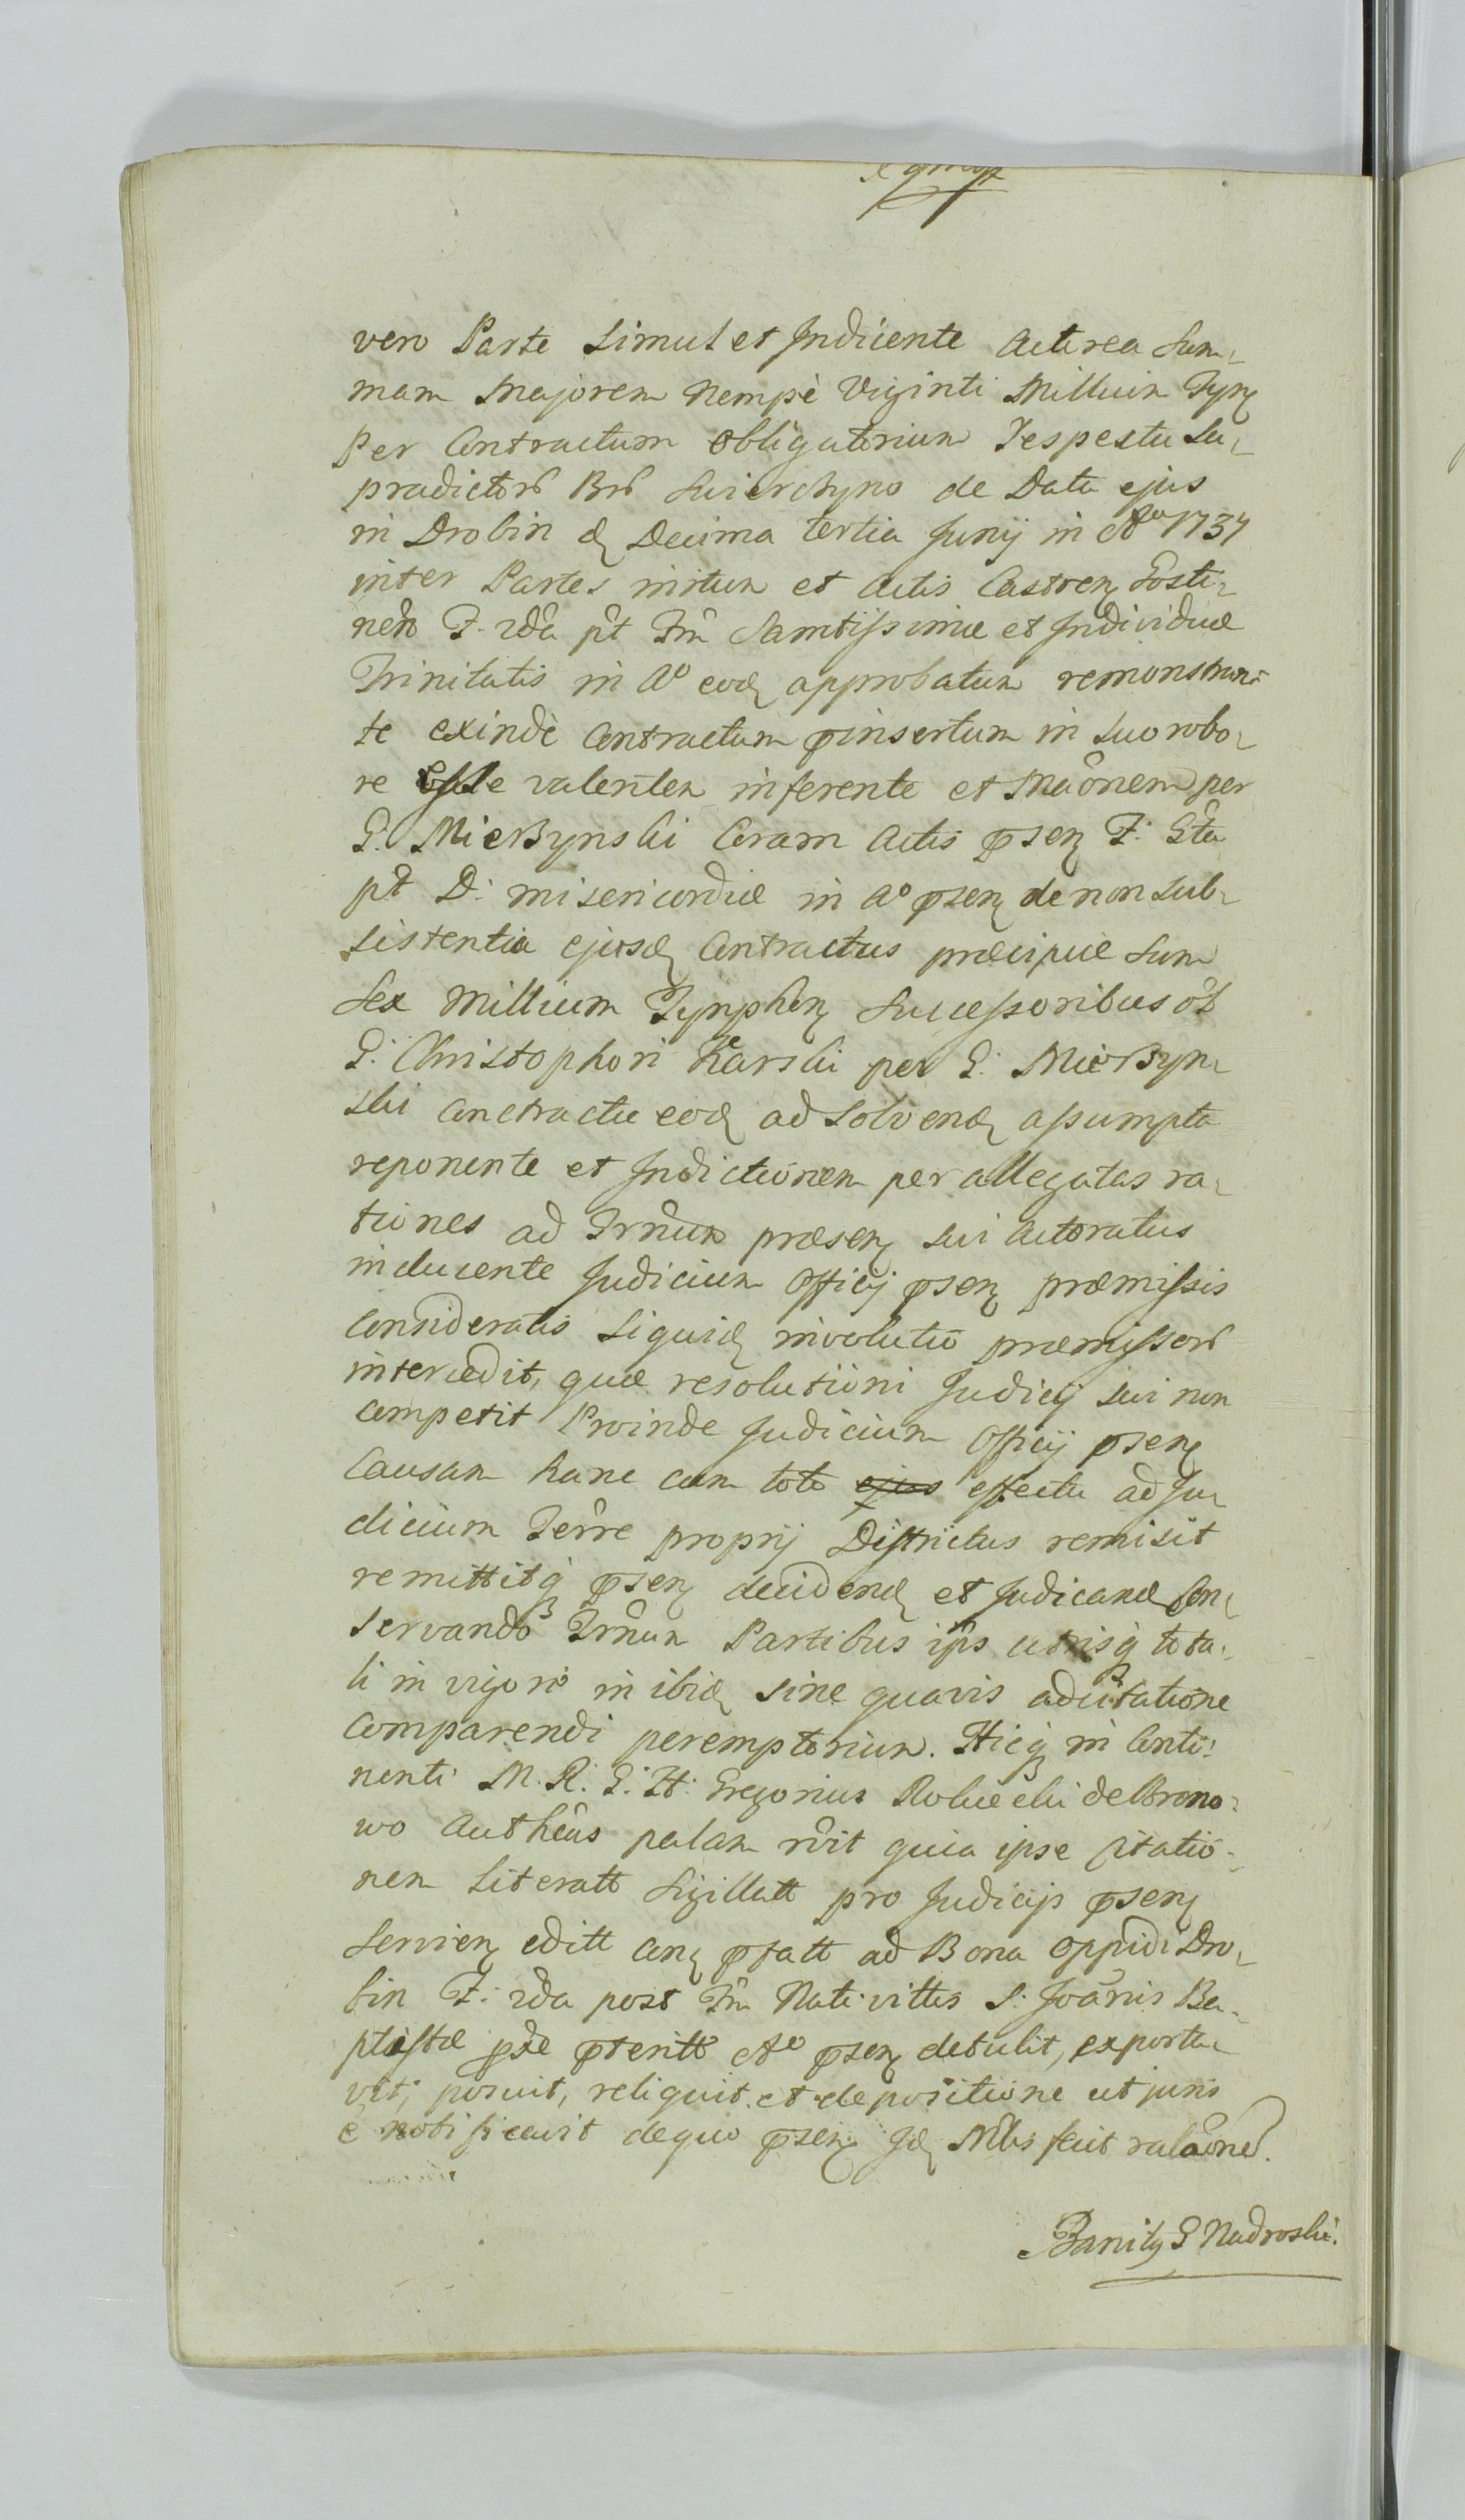 vero Parte simul et Indicente Actorea Sum¬
mam Majorem Nempè Viginti Millium Tynʒ
Per Contractum Obligatorium respectu Su¬
pradictorũ Bnrũ Swierczyno de Data ejus
in Drobin ꝺ Decima tertia Junij in Ao 1737
inter Partes initum et Actis Castrenʒ Gosti¬
nen̂ F. 2da pt Fm̂ Sanctissimæ et Individuæ
Trinitatis in Ao eodʒ approbatum remonstran¬
te exindè Contractum pinsertum in suo robo¬
re Esse valentem inferente et Maônem per
G. Mierzynski Coram Actis psenʒ F. 6ta
pt D: misericordiæ in Ao psenʒ de non sub¬
sistentia ejusdʒ Contractus præcipuè Sum
Sex Millium Tynphonʒ Successoribus ôl
G: Christophori Karski per G: Mierzyn¬
ski Contractu eodʒ ad solvendʒ assumpta
reponente et Indictionem per allegatas ra¬
tiones ad Trm̂num præsenʒ sui Actoratus
inducente Judicium Officij psenʒ præmissis
Consideratis Siquidʒ involutio præmissorũ
intercedit, quæ resolutioni Judicij sui non
competit Proinde Judicium Officij psenʒ
Causam hanc cum toto ejus effectu ad Ju¬
dicium Terre proprij Districtus remisit
remittitqʒ psenʒ decidendʒ et Judicandʒ Con¬
servando Trm̂num Partibus ipŝ utrisqʒ tota¬
li in vigore in ibidʒ sine quavis adcitatione
Comparendi peremptorium. Hicqʒ in Conti¬
nenti M. R. G: H: Gregorius de Brono¬
wo Autheûs palam rvît quia ipse Citatio¬
nem Literatt Sigillatt pro Judicijs psenʒ
Servienʒ editt Conʒ pfatt ad Bona Oppidi Dro¬
bin F: 2da post Fm̂ Nativittis S: Joânnis Ba¬
ptistæ pxe pteritt Ao psenʒ detulit, exporta¬
vit, posuit, reliquit et depositione ut juris
ê notificavit dequo psenʒ Jdʒ Mlis fecit relaône.
Banity G Nadroski.